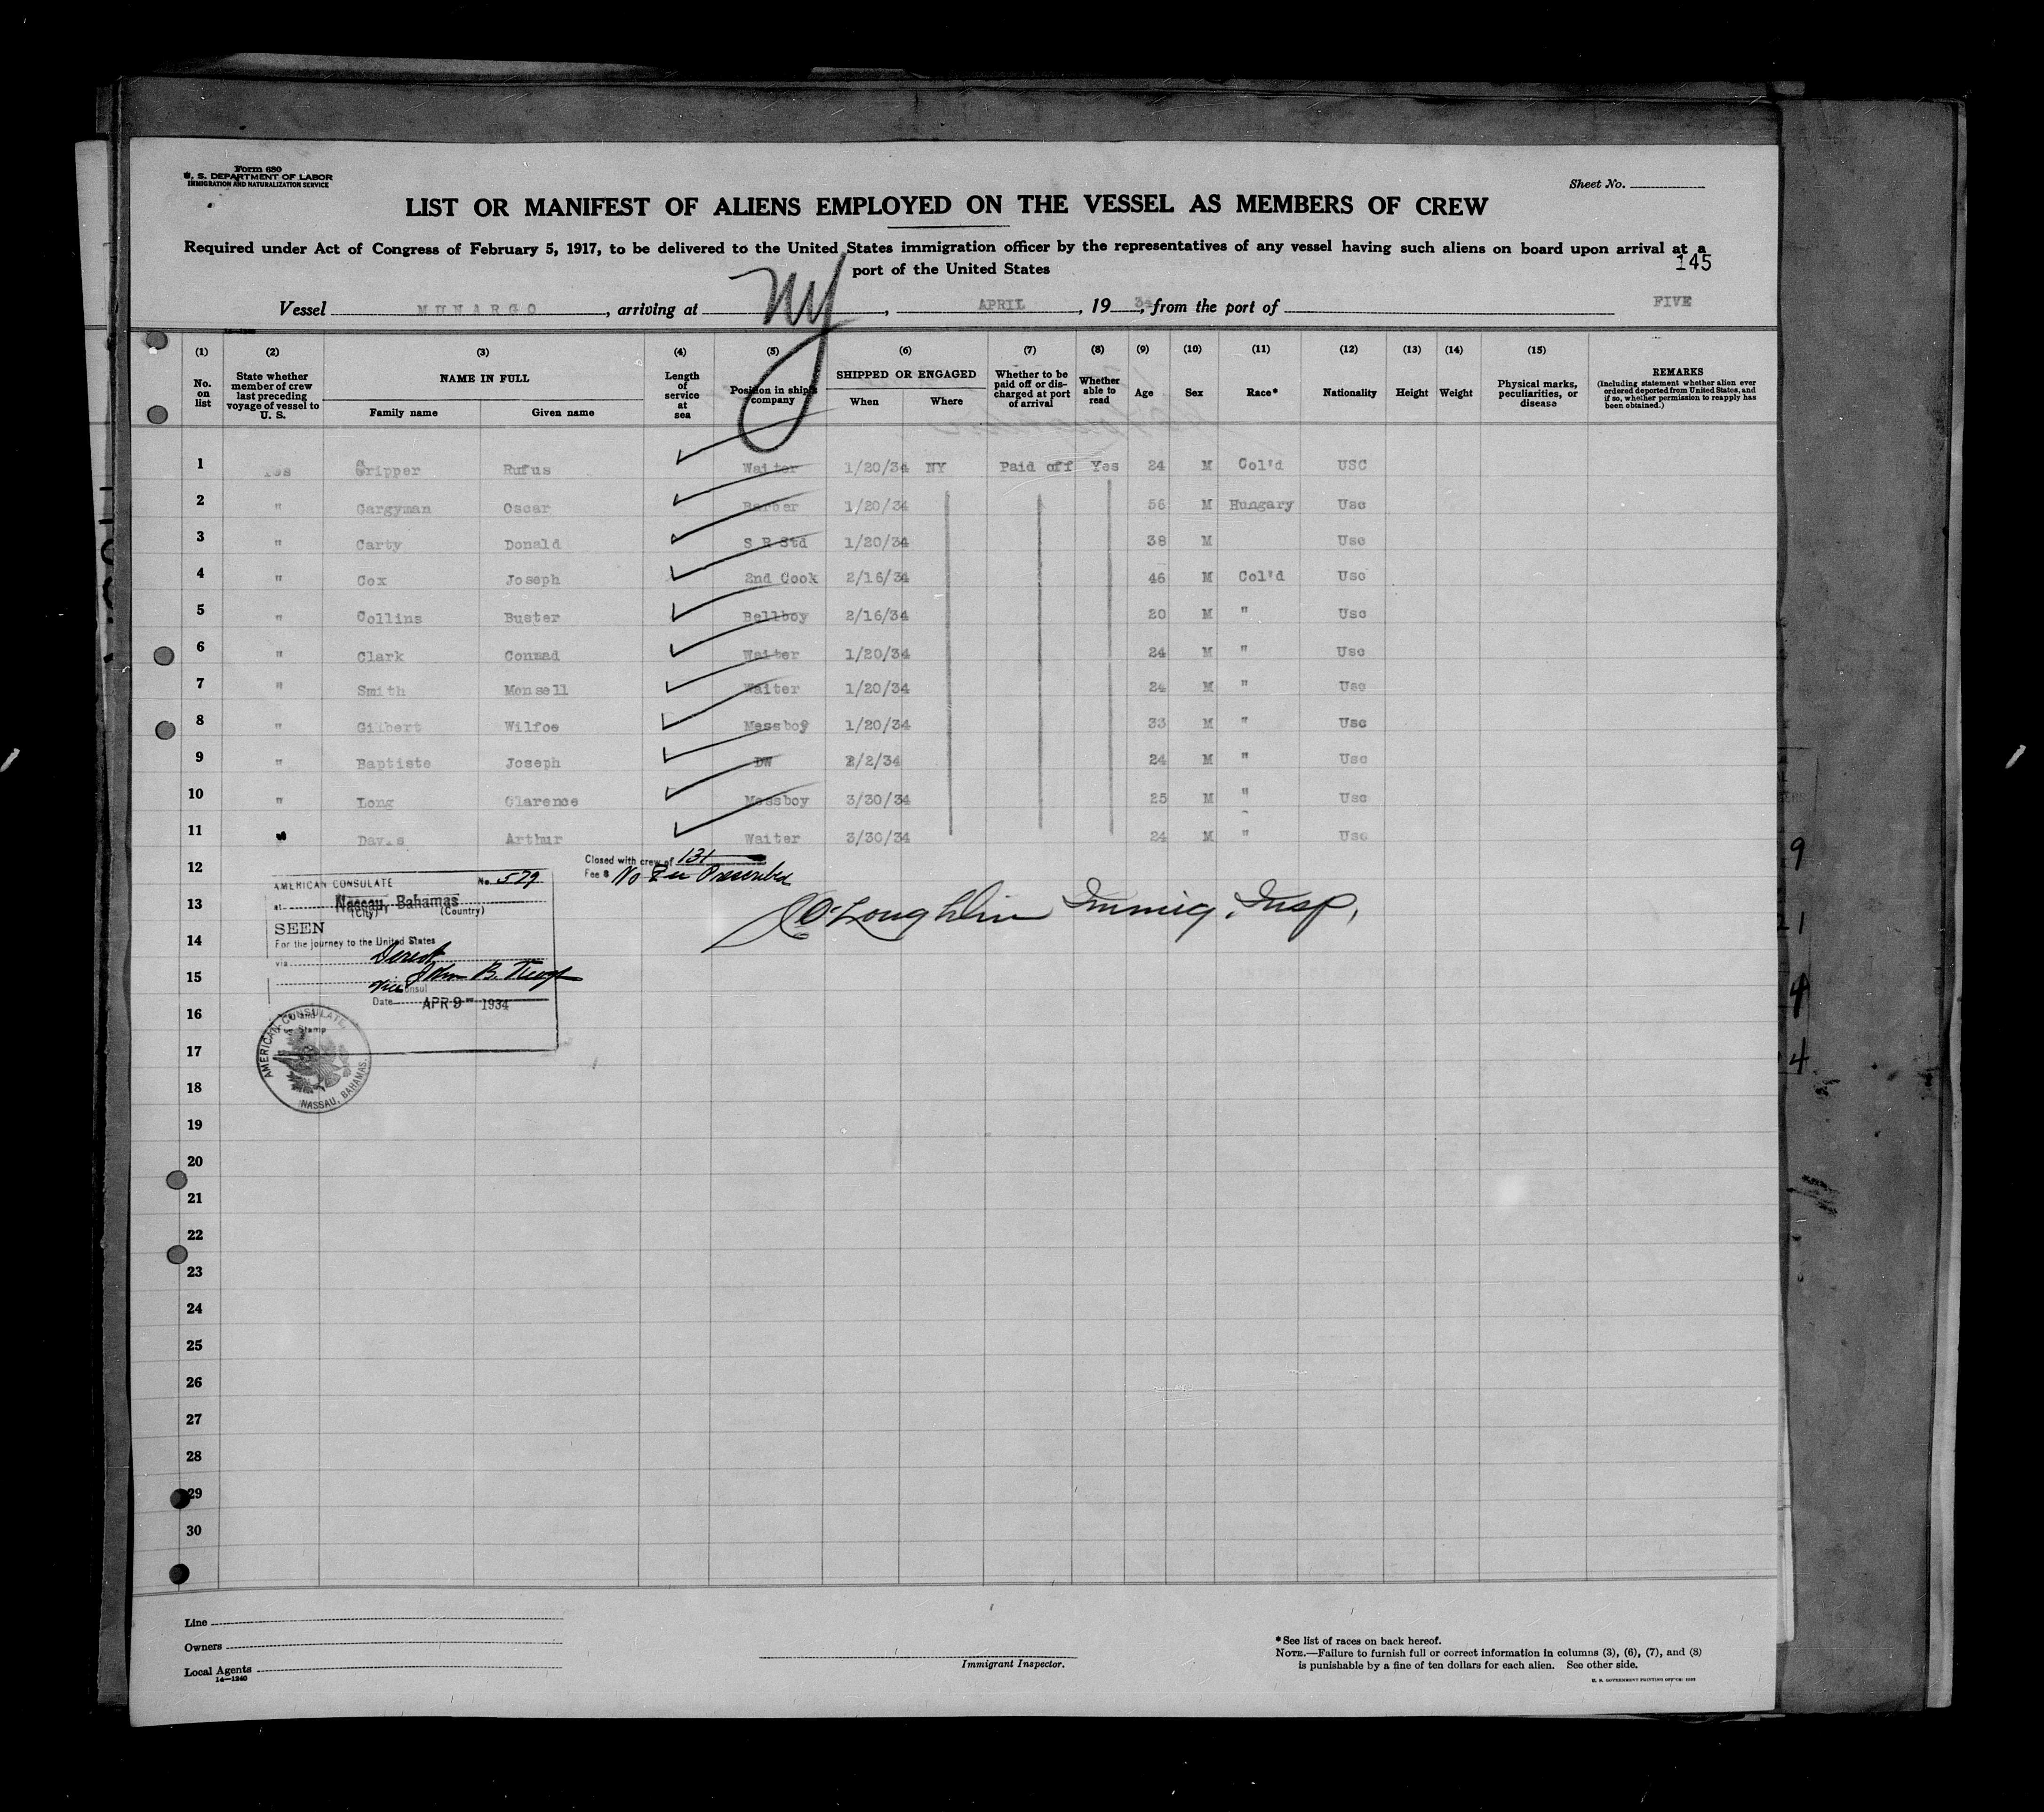 Form 680
U. S. DEPARTMENT OF LABOR
IMMIGRATION AND NATURALIZATION SERVICE
Sheet No.
LIST OR MANIFEST OF ALIENS EMPLOYED ON THE VESSEL AS MEMBERS OF CREW
Required under Act of Congress of February 5, 1917, to be delivered to the United States immigration officer by the representatives of any vessel having such aliens on board upon arrival at a
port of the United States
145
Vessel MUNARGO, arriving at NY, APRIL, 19 34, from the port of FIVE
(1) (2) (3) (4) (5) (6) (7) (8) (9) (10) (11) (12) (13) (14) (15)
No. on list
State whether member of crew last preceding voyage of vessel to U. S.
NAME IN FULL
Family name Given name
Length of service at sea
Position in ship's company
SHIPPED OR ENGAGED
When Where
Whether to be paid off or discharged at port of arrival
Whether able to read
Age Sex Race* Nationality Height Weight
Physical marks, peculiarities, or disease
REMARKS
(Including statement whether alien ever ordered deported from United States, and if so, whether permission to reapply has been obtained.)
1 Yes Gripper Rufus Waiter 1/20/34 NY Paid off Yes 24 M Col'd USC
2 " Gargyman Oscar Barber 1/20/34 56 M Hungary Usc
3 " Carty Donald S R Std 1/20/34 38 M Usc
4 " Cox Joseph 2nd Cook 2/16/34 46 M Col'd Usc
5 " Collins Buster Bellboy 2/16/34 20 M " Usc
6 " Clark Conrad Waiter 1/20/34 24 M " Usc
7 " Smith Monsell Waiter 1/20/34 24 M " Usc
8 " Gilbert Wilfoe Messboy 1/20/34 33 M " Usc
9 " Baptiste Joseph DW 2/2/34 24 M " Usc
10 " Long Clarence Messboy 3/30/34 25 M " Usc
11 " Davis Arthur Waiter 3/30/34 24 M " Usc
12
Closed with crew of 131
Fee $ No Fee Prescribed
AMERICAN CONSULATE No. 529
at Nassau, Bahamas
(City) (Country)
13
O'Loughlin Immig. Insp.
SEEN
14
For the journey to the United States
via Direct
15
John B.
Vice Consul
Date APR 9 1934
16
Stamp
AMERICAN CONSULATE, NASSAU, BAHAMAS.
17
18
19
20
21
22
23
24
25
26
27
28
29
30
Line
Owners
Local Agents
14—1240
Immigrant Inspector.
*See list of races on back hereof.
NOTE.—Failure to furnish full or correct information in columns (3), (6), (7), and (8)
is punishable by a fine of ten dollars for each alien. See other side.